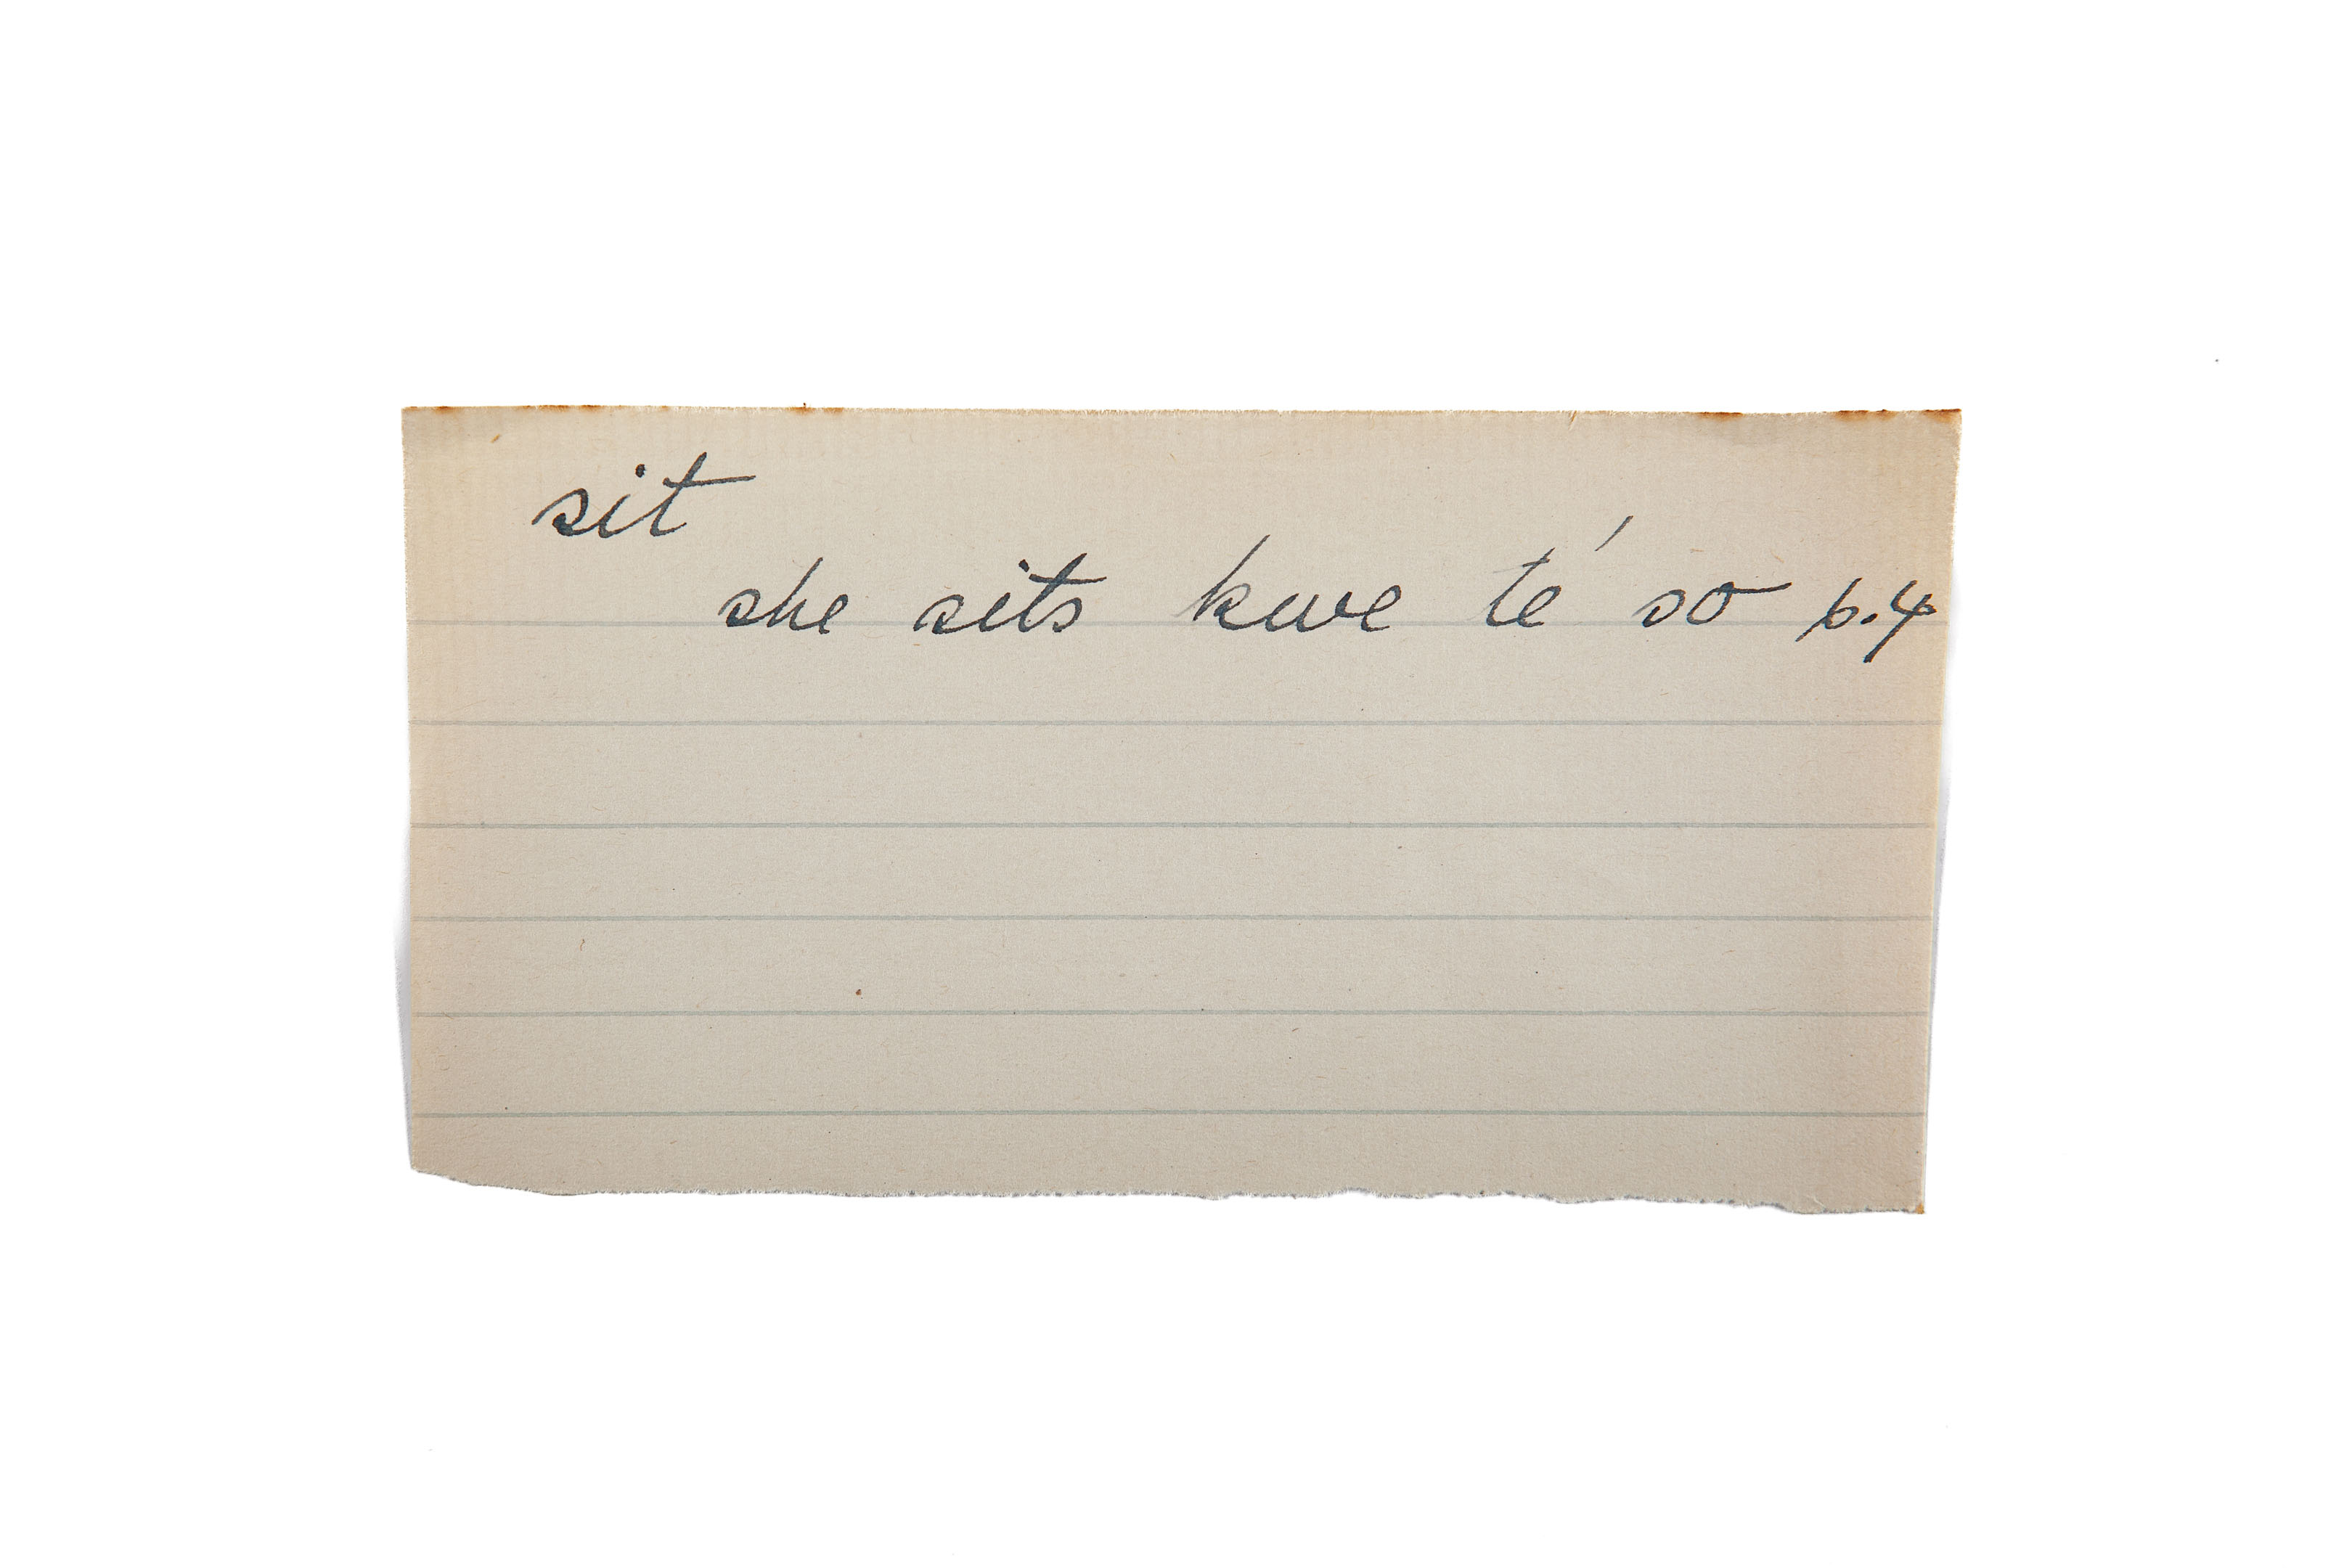 sit
she sits kwe te´ so p.4